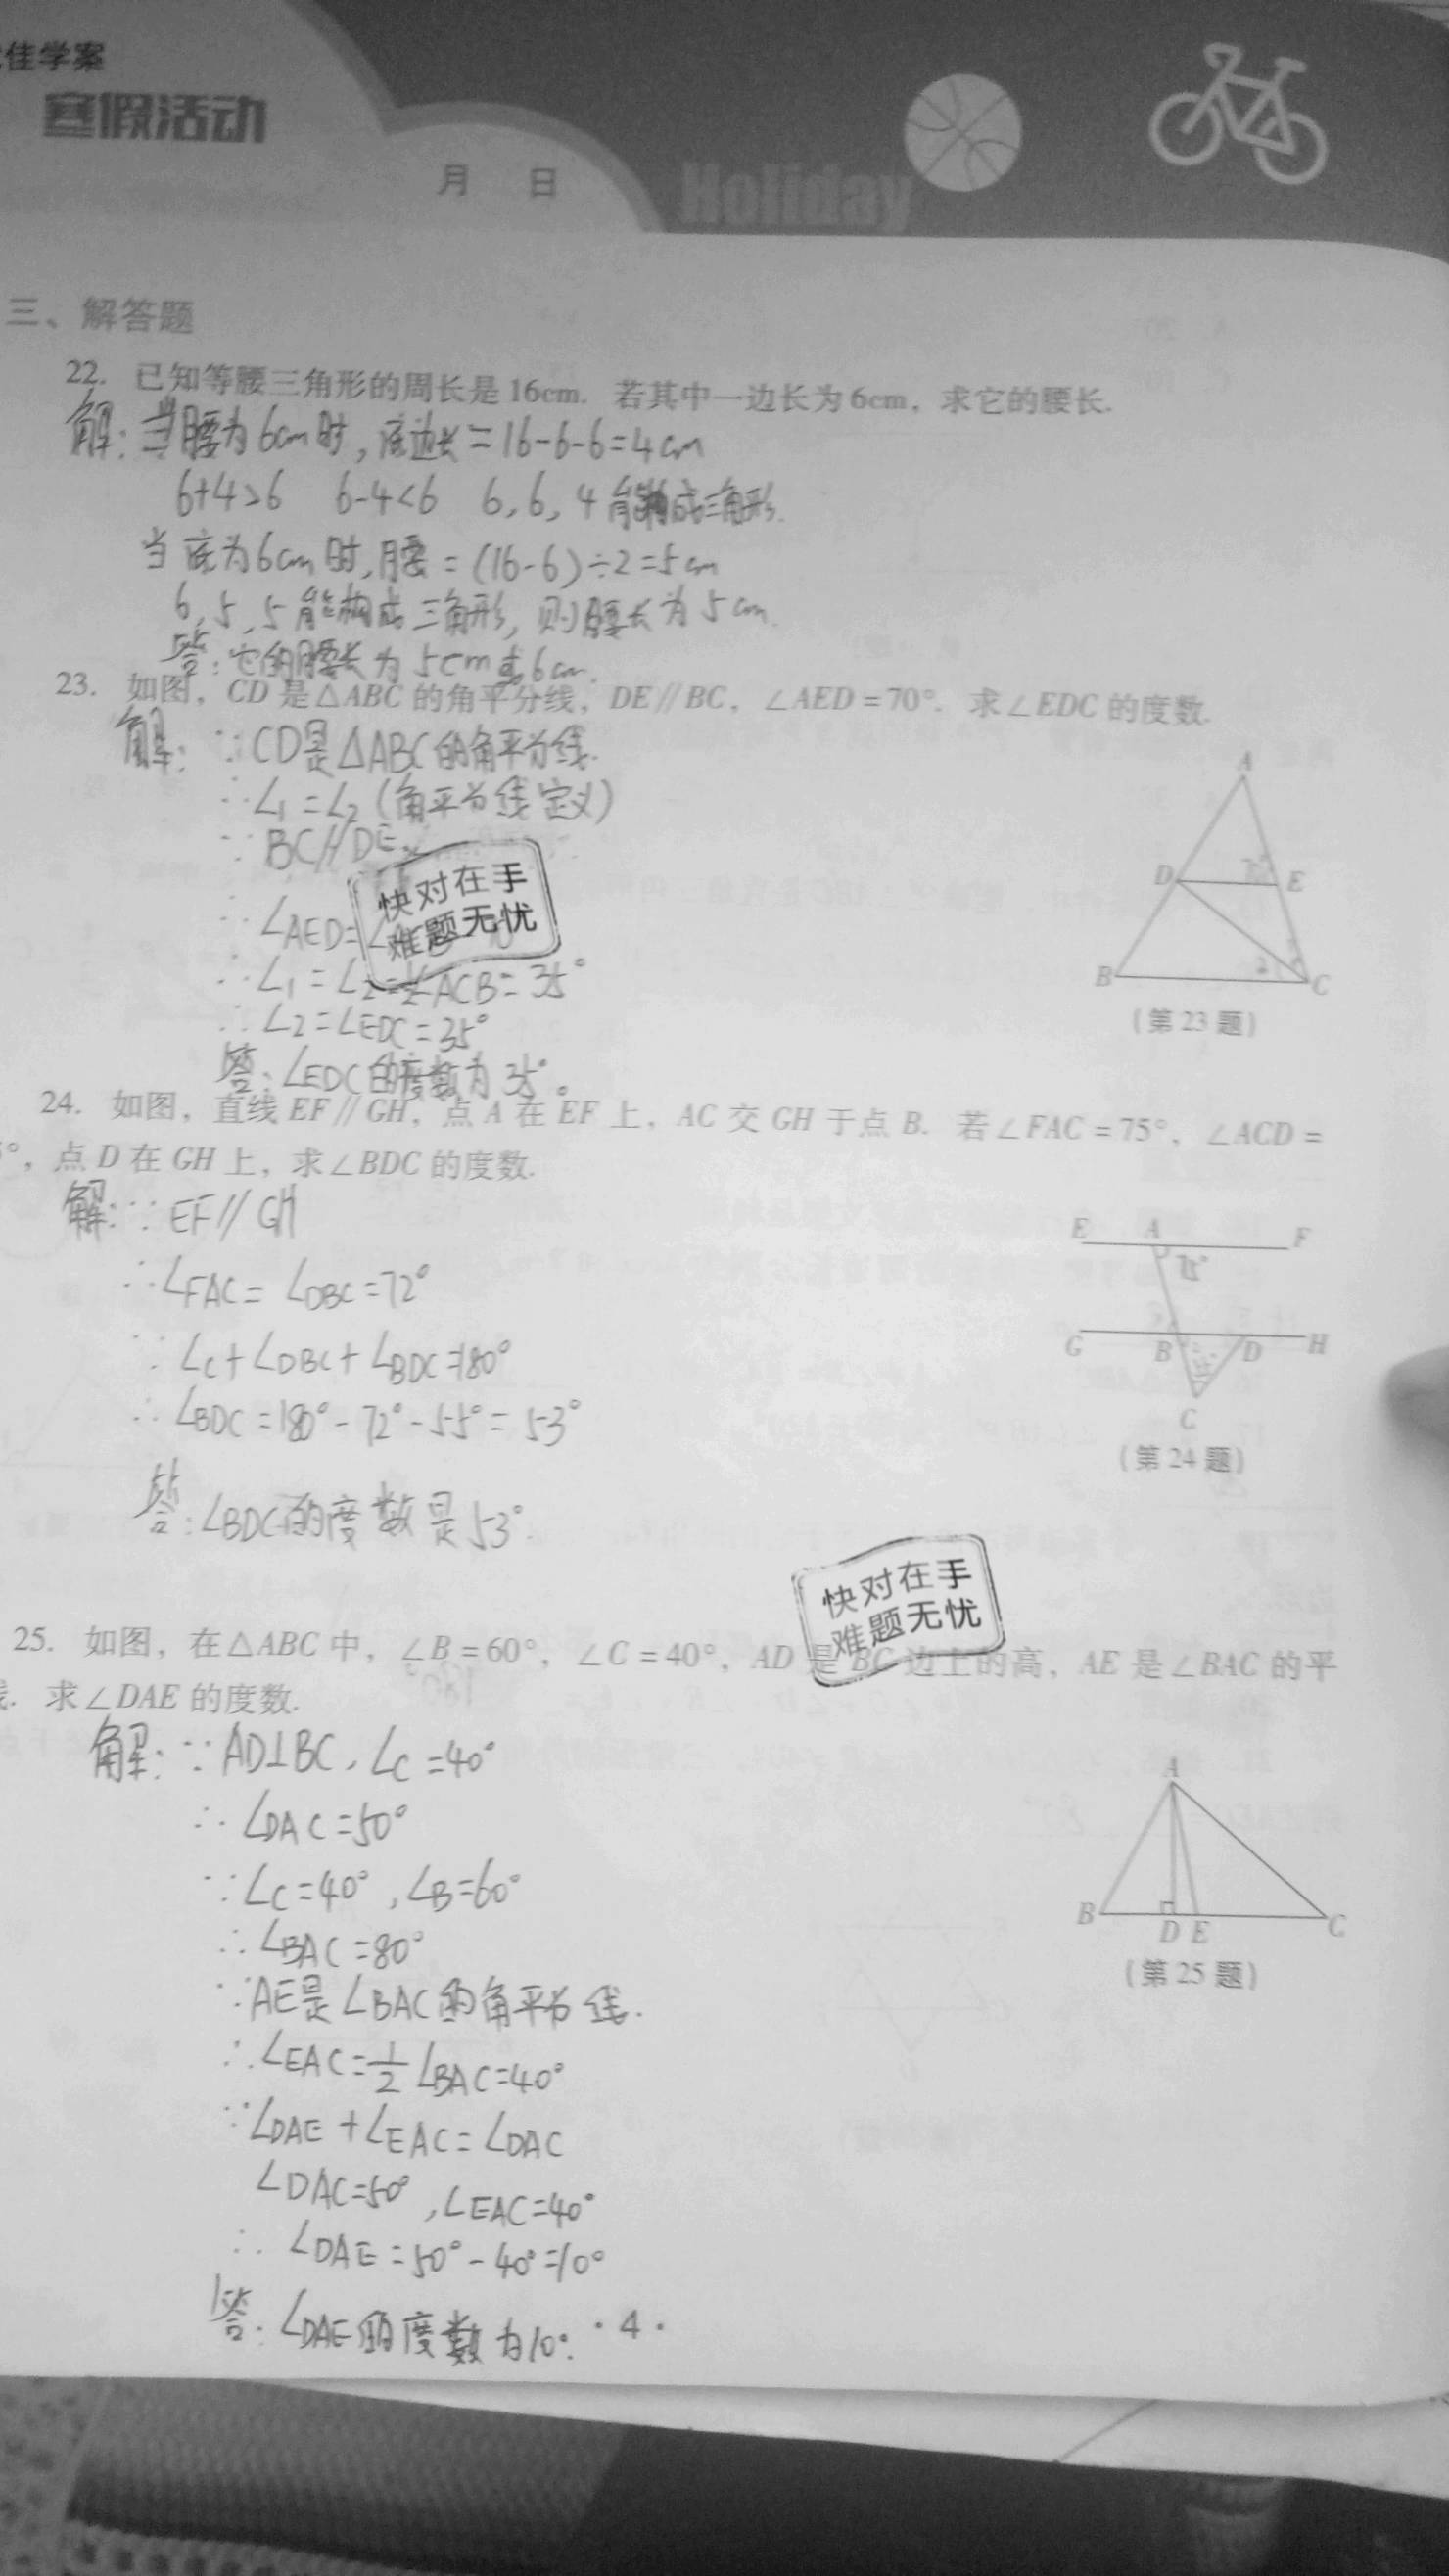 佳学案
寒假活动
月 日
Holiday
三、解答题
22. 已知等腰三角形的周长是16cm. 若其中一边长为6cm, 求它的腰长.
解: 当腰为6cm时, 底边长=16-6-6=4cm
6+4>6 6-4<6 6, 6, 4能构成三角形.
当底为6cm时, 腰=(16-6)÷2=5cm
6, 5, 5能构成三角形, 则腰长为5cm.
答: 它的腰长为5cm或6cm.
23. 如图, CD是△ABC的角平分线, DE∥BC, ∠AED=70°. 求∠EDC的度数.
解: ∵CD是△ABC的角平分线.
∴∠1=∠2(角平分线定义)
∵BC∥DE
∴∠AED=
快对在手
难题无忧
∴∠1=∠2=½∠ACB=35°
∴∠2=∠EDC=35°
答: ∠EDC的度数为35°。
A
D
E
B
2
C
(第23题)
24. 如图, 直线EF∥GH, 点A在EF上, AC交GH于点B. 若∠FAC=75°, ∠ACD=
°, 点D在GH上, 求∠BDC的度数.
解: ∵EF∥GH
∴∠FAC=∠DBC=72°
∵∠C+∠DBC+∠BDC=180°
∴∠BDC=180°-72°-55°=53°
答: ∠BDC的度数是53°.
E A F
75°
G B D H
C
(第24题)
快对在手
难题无忧
25. 如图, 在△ABC中, ∠B=60°, ∠C=40°, AD是BC边上的高, AE是∠BAC的平
. 求∠DAE的度数.
解: ∵AD⊥BC, ∠C=40°
∴∠DAC=50°
∵∠C=40°, ∠B=60°
∴∠BAC=80°
∵AE是∠BAC的角平分线.
∴∠EAC=½∠BAC=40°
∵∠DAE+∠EAC=∠DAC
∠DAC=50°, ∠EAC=40°
∴∠DAE=50°-40°=10°
答: ∠DAE的度数为10°.
A
B D E C
(第25题)
·4·